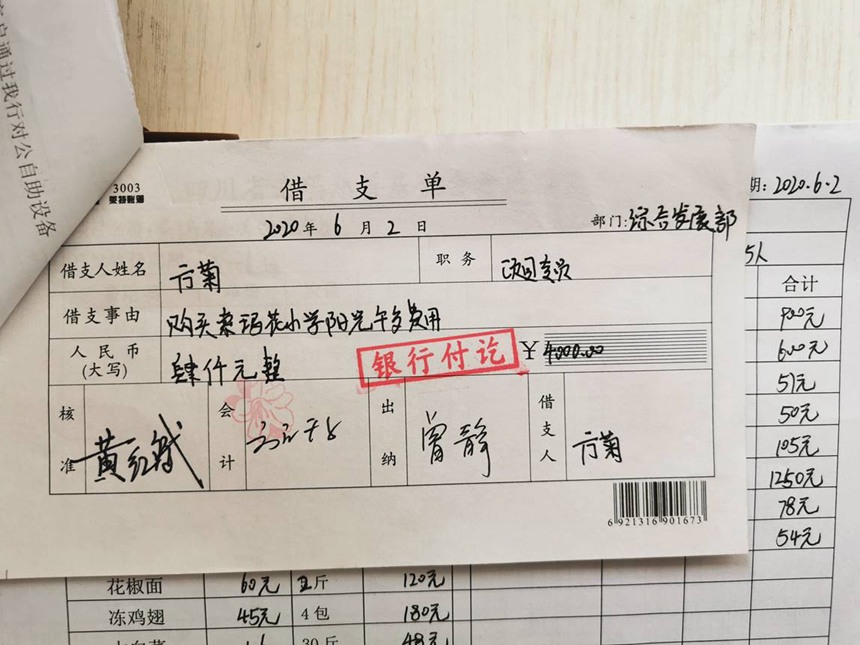 客户通过我行对公自助设备
3003
莱特账簿
借支单
2020年6月2日
部门:综合发展部
借支人姓名 方菊 职务 项目专员
借支事由 购买索玛花小学阳光午餐费用
人民币(大写) 肆仟元整 ¥4000.00
银行付讫
核准 会计 出纳 曾静 借支人 方菊
6 921316 901673
期:2020.6.2
5人
合计
900元
600元
51元
50元
105元
1250元
78元
54元
花椒面 60元 斤 120元
冻鸡翅 45元 4包 180元
30斤 48元